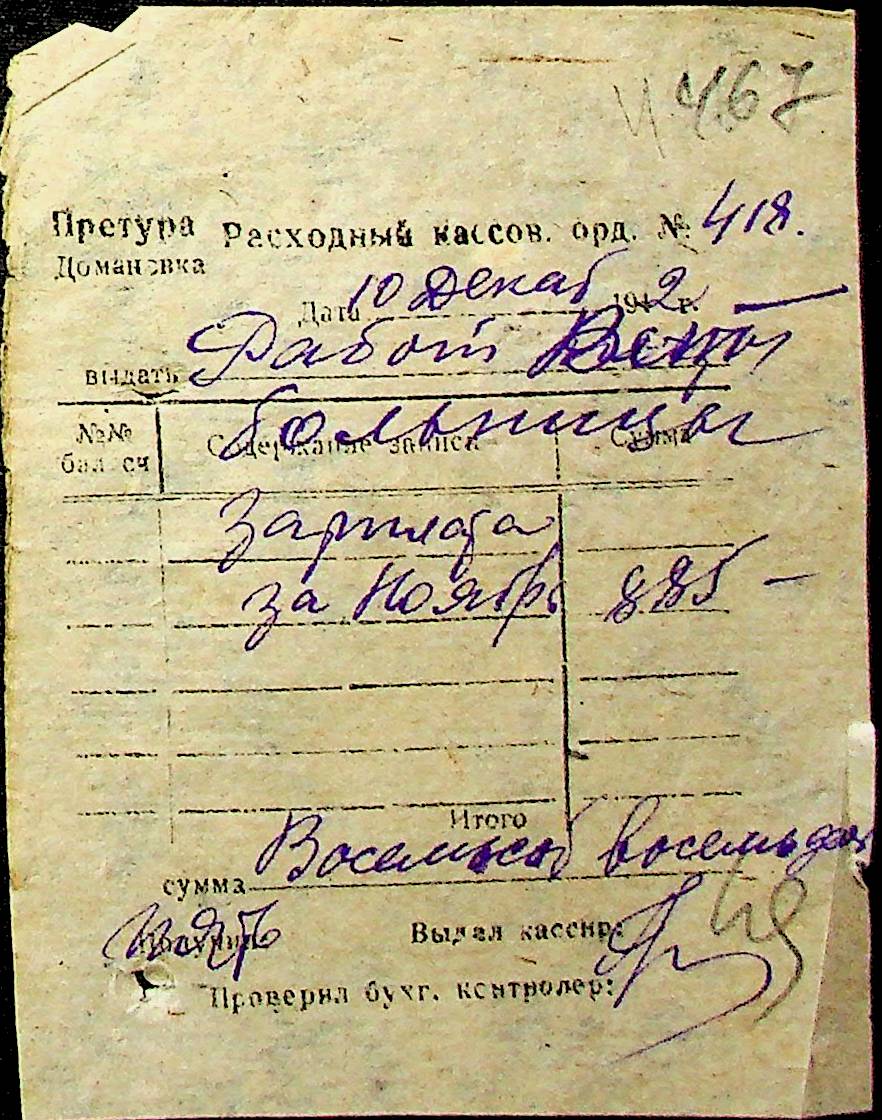 4.67
Претура Расходный кассов. орд. № 418.
Домановка
Дата 10 Декаб 1942 г.
выдать Работ
больницы
№№ бал сч Содержание записи Сумма
Зарплата
за Ноябрь 885 —
Итого
сумма Восемьсот восемьдесят
пять
Получил Выдал кассир:
Проверил бухг. контролер: